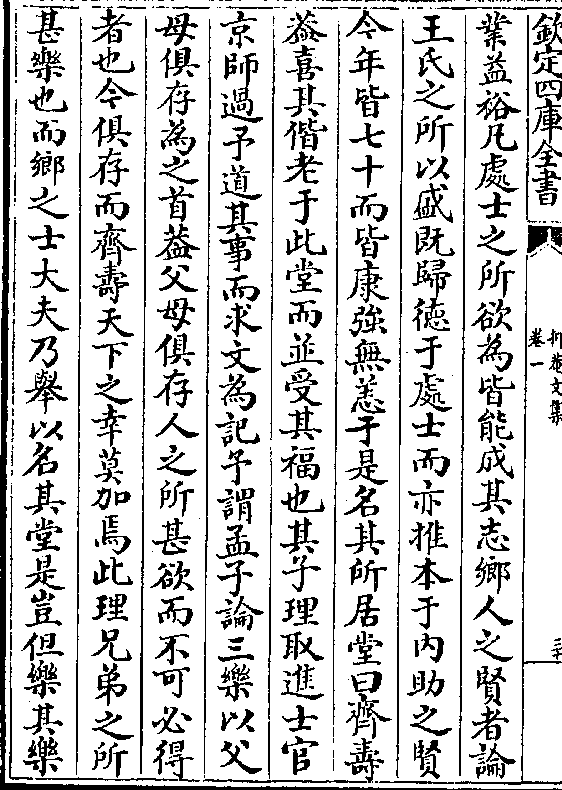 欽定四庫全書
抑菴文集
卷一
業益裕凡處士之所欲為皆能成其志鄉人之賢者論
王氏之所以盛既歸德于處士而亦推本于內助之賢
今年皆七十而皆康強無恙于是名其所居堂曰齊壽
葢喜其偕老于此堂而並受其福也其子理取進士官
京師過予道其事而求文為記予謂孟子論三樂以父
母俱存為之首葢父母俱存人之所甚欲而不可必得
者也今俱存而齊壽天下之幸莫加焉此理兄弟之所
甚樂也而鄉之士大夫乃舉以名其堂是豈但樂其樂